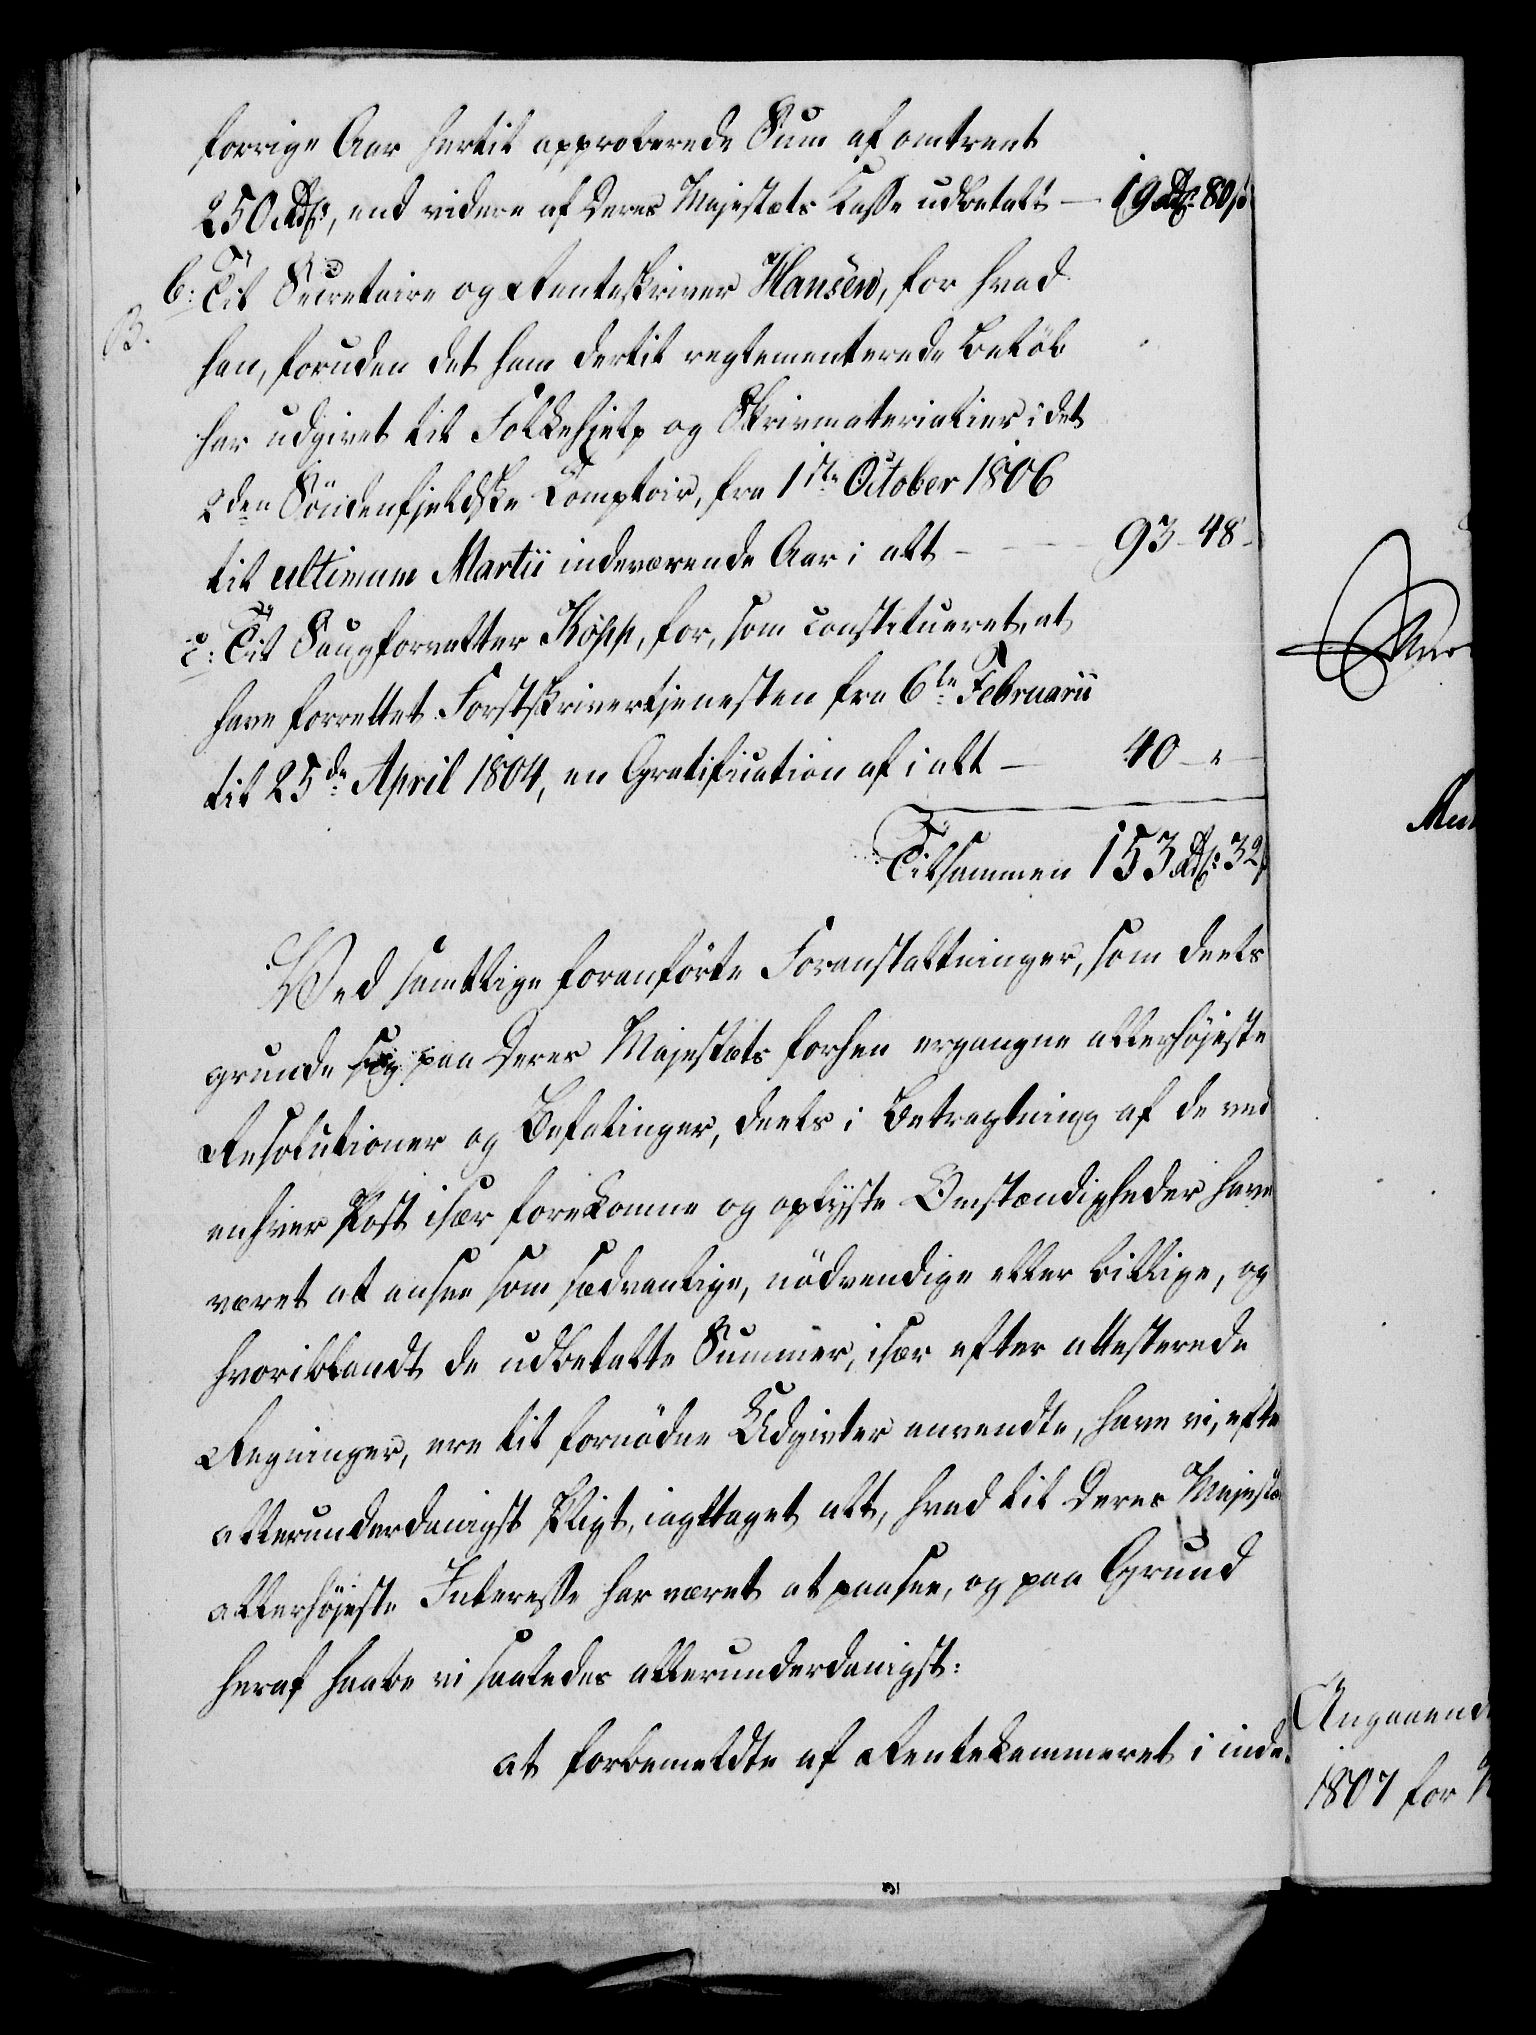 forrige Aar hertil approberede Sum af omtrent
250 Rdr, end videre af Deres Majestæts Kasse udbetalt — 19 Rdr 80 s
b: Til Secretaire og Renteskriver Hansen, for hvad
B.
han, foruden det ham dertil reglementerede Beløb
har udgivet til Folkehjelp og Skrivmaterialier i det
2den Söndenfjeldske Comptoir, fra 1ste October 1806
til ultimum Martii indeværende Aar i alt - - - 93 - 48 -
c: Til Saugforvalter Kopp, for, som constitueret, at
have forrettet Forstskrivertjenesten fra 6te Februarii
til 25de April 1804, en Gratification af i alt — 40 - " -
Tilsammen 153 Rdr 32 s
Ved samtlige foranförte Foranstaltninger, som deels
grunde sig paa Deres Majestæts forhen ergangne allerhöjeste
Resolutioner og Befalinger, deels i Betragtning af de ved
enhver Post især forekomne og oplyste Omstændigheder have
været at ansee som sædvanlige, nödvendige eller billige, og
hvoriblandt de udbetalte Summer, især efter attesterede
Regninger, ere til fornödne Udgivter anvendte, have vi, efte
allerunderdanigst Pligt, iagttaget alt, hvad til Deres Majestæ
allerhöjeste Interesse har været at paasee, og paa Grund
heraf haabe vi saaledes allerunderdanigst:
at forbemeldte af Rentekammeret i inde-
Angaaend
1807 for